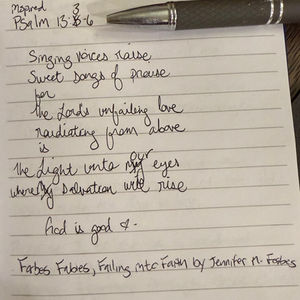 Inspired 3
Psalm 13:5-6
Singing voices raise
Sweet songs of praise
for
the Lord's unfailing love
raidiating from above
is
the Light unto our eyes
whereby Salvation will rise
God is good &
Fabes Fabies, Falling into Faith by Jennifer M. Forbes